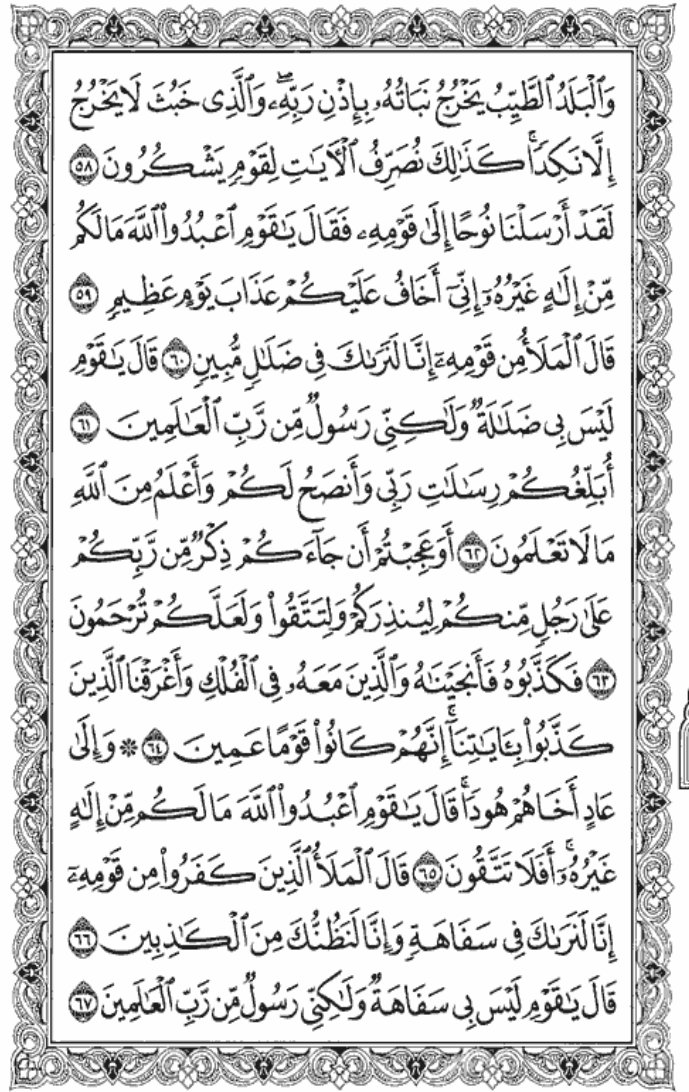 وَٱلْبَلَدُ ٱلطَّيِّبُ يَخْرُجُ نَبَاتُهُۥ بِإِذْنِ رَبِّهِۦۖ وَٱلَّذِى خَبُثَ لَا يَخْرُجُ
إِلَّا نَكِدًاۚ كَذَٰلِكَ نُصَرِّفُ ٱلْأَيَٰتِ لِقَوْمٍ يَشْكُرُونَ ٥٨
لَقَدْ أَرْسَلْنَا نُوحًا إِلَىٰ قَوْمِهِۦ فَقَالَ يَٰقَوْمِ ٱعْبُدُوا۟ ٱللَّهَ مَا لَكُم
مِّنْ إِلَٰهٍ غَيْرُهُۥٓ إِنِّىٓ أَخَافُ عَلَيْكُمْ عَذَابَ يَوْمٍ عَظِيمٍ ٥٩
قَالَ ٱلْمَلَأُ مِن قَوْمِهِۦٓ إِنَّا لَنَرَىٰكَ فِى ضَلَٰلٍ مُّبِينٍ ٦٠ قَالَ يَٰقَوْمِ
لَيْسَ بِى ضَلَٰلَةٌ وَلَٰكِنِّى رَسُولٌ مِّن رَّبِّ ٱلْعَٰلَمِينَ ٦١
أُبَلِّغُكُمْ رِسَٰلَٰتِ رَبِّى وَأَنصَحُ لَكُمْ وَأَعْلَمُ مِنَ ٱللَّهِ
مَا لَا تَعْلَمُونَ ٦٢ أَوَعَجِبْتُمْ أَن جَآءَكُمْ ذِكْرٌ مِّن رَّبِّكُمْ
عَلَىٰ رَجُلٍ مِّنكُمْ لِيُنذِرَكُمْ وَلِتَتَّقُوا۟ وَلَعَلَّكُمْ تُرْحَمُونَ
٦٣ فَكَذَّبُوهُ فَأَنجَيْنَٰهُ وَٱلَّذِينَ مَعَهُۥ فِى ٱلْفُلْكِ وَأَغْرَقْنَا ٱلَّذِينَ
كَذَّبُوا۟ بِـَٔايَٰتِنَآۚ إِنَّهُمْ كَانُوا۟ قَوْمًا عَمِينَ ٦٤ ۞ وَإِلَىٰ
عَادٍ أَخَاهُمْ هُودًاۚ قَالَ يَٰقَوْمِ ٱعْبُدُوا۟ ٱللَّهَ مَا لَكُم مِّنْ إِلَٰهٍ
غَيْرُهُۥٓۚ أَفَلَا تَتَّقُونَ ٦٥ قَالَ ٱلْمَلَأُ ٱلَّذِينَ كَفَرُوا۟ مِن قَوْمِهِۦٓ
إِنَّا لَنَرَىٰكَ فِى سَفَاهَةٍ وَإِنَّا لَنَظُنُّكَ مِنَ ٱلْكَٰذِبِينَ ٦٦
قَالَ يَٰقَوْمِ لَيْسَ بِى سَفَاهَةٌ وَلَٰكِنِّى رَسُولٌ مِّن رَّبِّ ٱلْعَٰلَمِينَ ٦٧